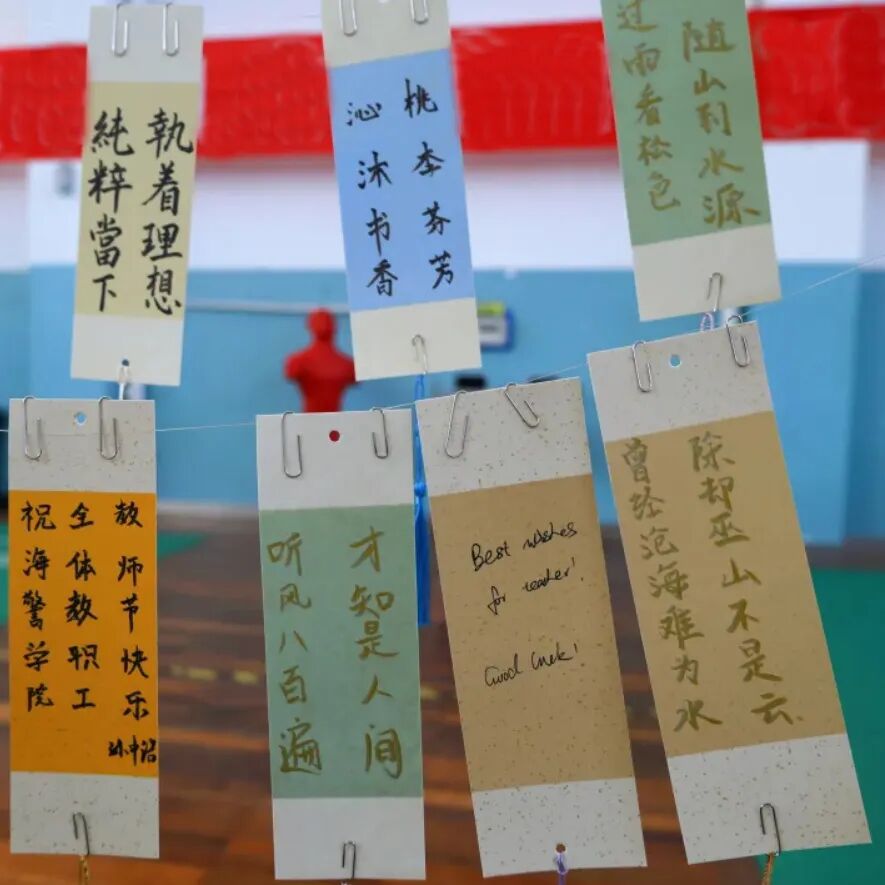 執着理想
純粹當下
桃李芬芳
沁沐书香
过雨看松色
随山到水源
祝海警学院
全体教职工
教师节快乐
听风八百遍
才知是人间
Best wishes
for teacher!
Good luck!
曾经沧海难为水
除却巫山不是云